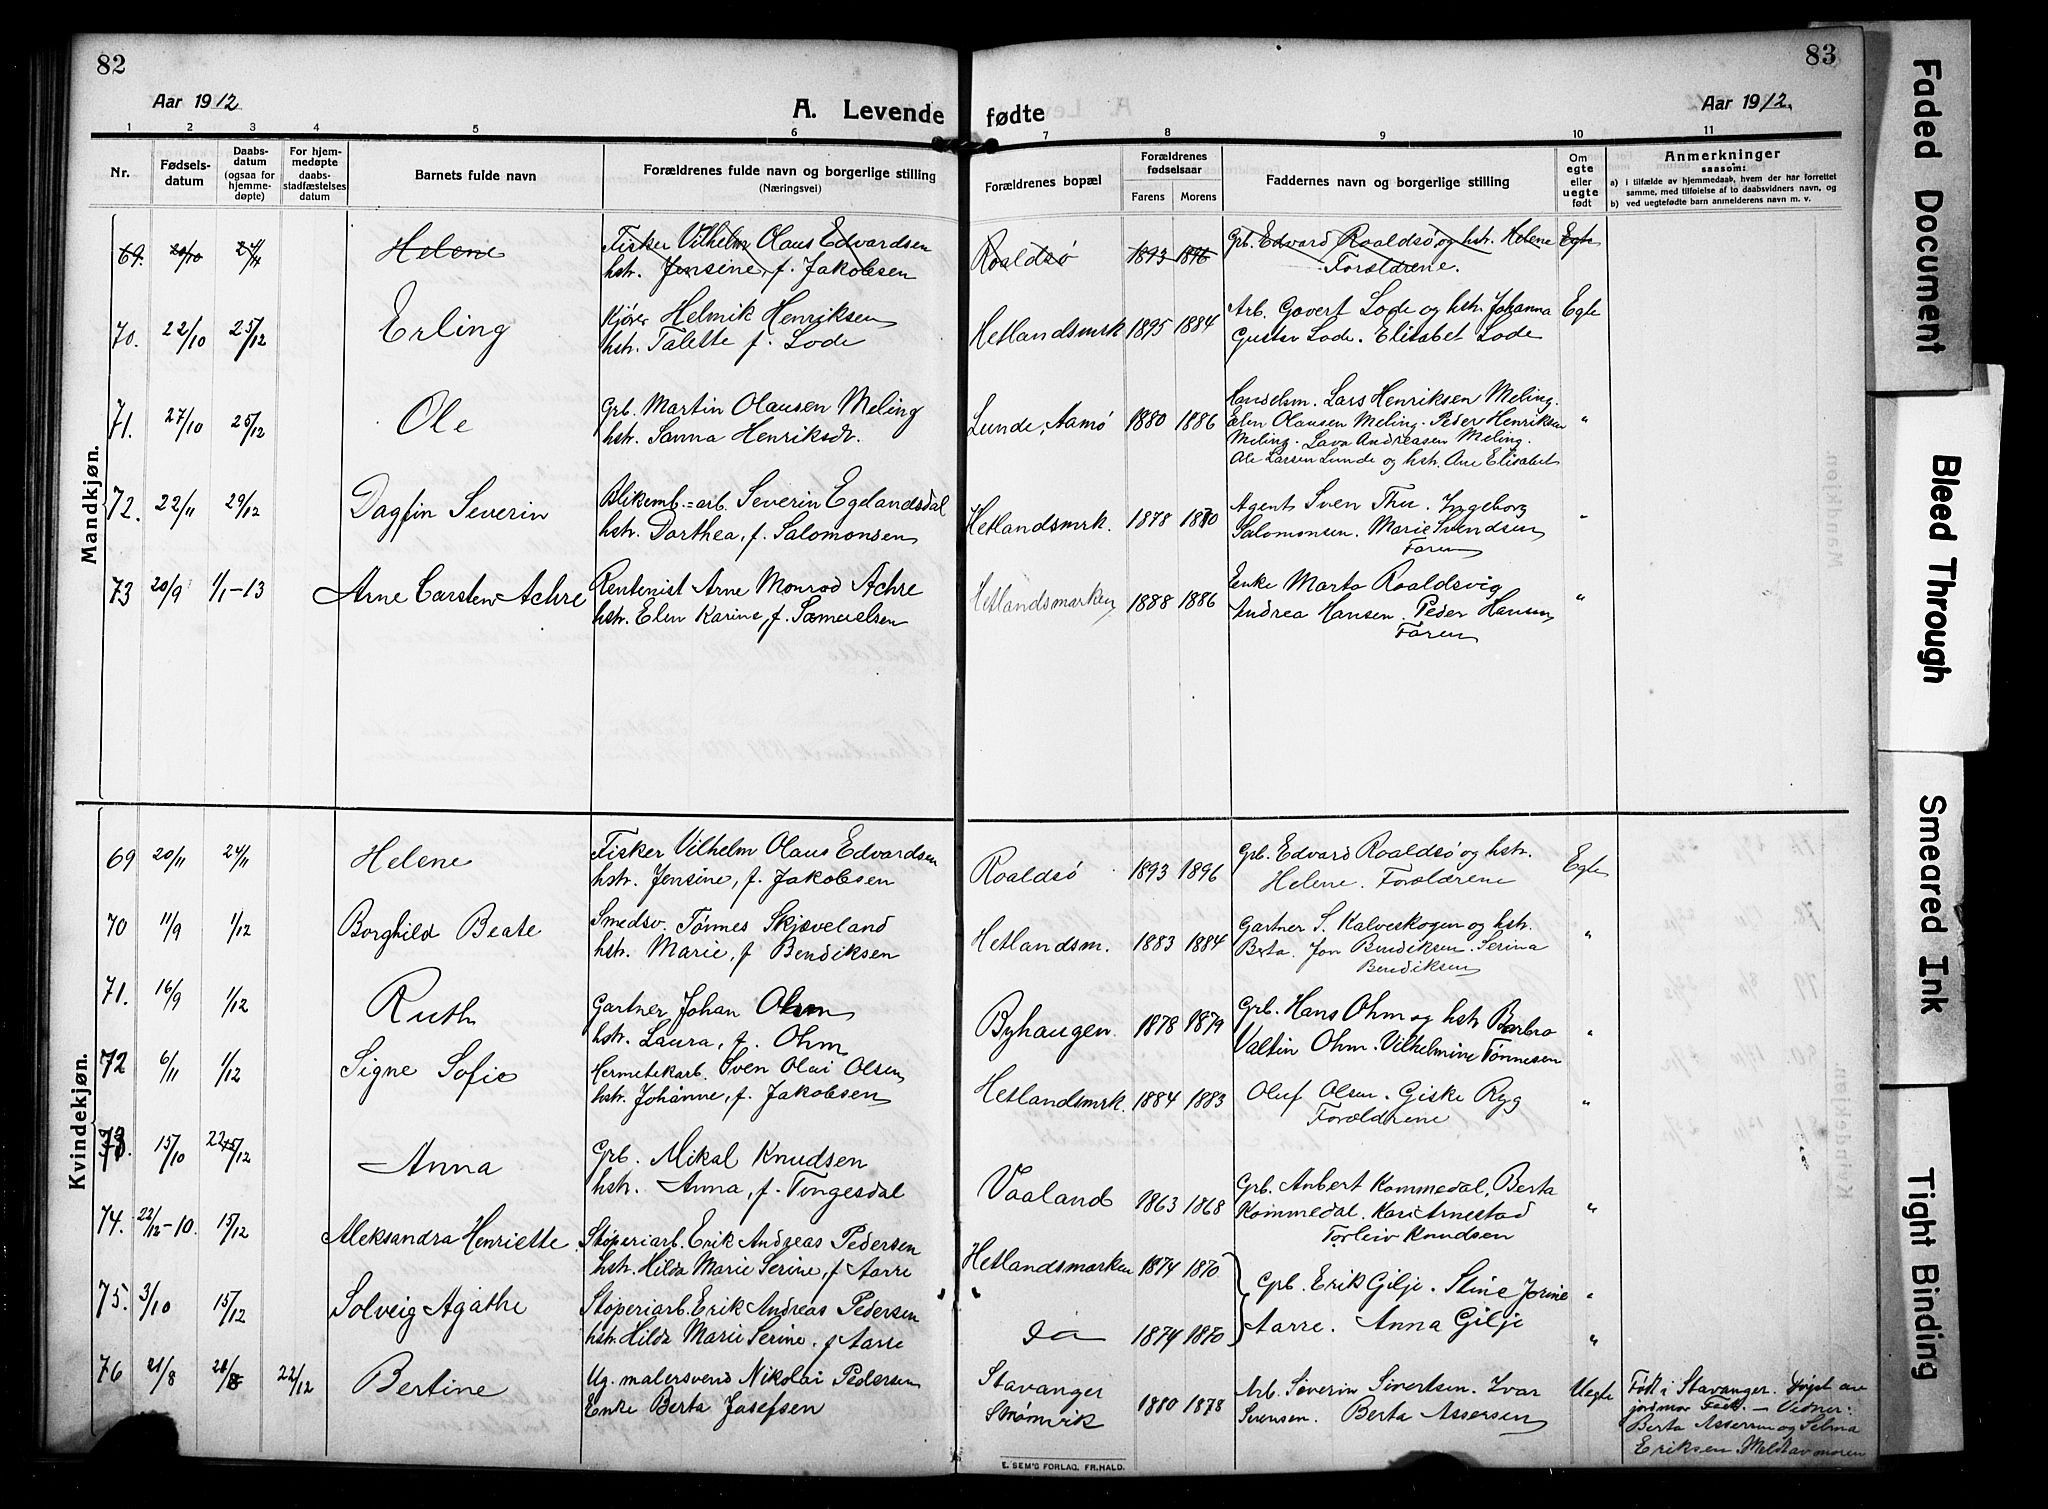 82
83
Aar 1912
A. Levende fødte
Aar 1912.
1 2 3 4 5 6 7 8 9 10 11
Nr.
Fødsels-
datum
Daabs-
datum
(ogsaa for
hjemme-
døpte)
For hjem-
medøpte
daabs-
stadfæstelses
datum
Barnets fulde navn
Forældrenes fulde navn og borgerlige stilling
(Næringsvei)
Forældrenes bopæl
Forældrenes
fødselsaar
Farens Morens
Faddernes navn og borgerlige stilling
Om
egte
eller
uegte
født
Anmerkninger
saasom:
a) i tilfælde av hjemmedaab, hvem der har forrettet
samme, med tilføielse af to daabsvidners navn, og
b) ved uegtefødte barn anmelderens navn m. v.
Mandkjøn.
69. 20/10 24/11 Helene
Fisker Vilhelm Olaus Edvardsen
hstr. Jensine, f. Jakobsen
Roaldsø 1893 1896
Grb. Edvard Roaldsø og hstr. Helene
Forældrene.
Egte
70. 22/10 25/12 Erling
Kjører Helmik Henriksen
hstr. Talette f. Lode
Hetlandsmrk 1895 1884
Arb. Govert Lode og hstr. Johanna
Gustav Lode. Elisabet Lode
Egte
71. 27/10 25/12 Ole
Grb. Martin Olausen Meling
hstr. Sanna Henriksdr.
Lunde, Aamø 1880 1886
Handelsm. Lars Henriksen Meling.
Elen Olausen Meling. Peder Henriksen
Meling. Lava Andreasen Meling.
Ole Larsen Lunde og hstr. Ane Elisabet
"
72. 22/11 29/12 Dagfin Severin
Blikemb.=arb. Severin Egelandsdal
hstr. Dorthea, f. Salomonsen
Hetlandsmrk. 1878 1880
Agent Sven Thu. Ingeborg
Salomonsen. Marie Svendsen
Faren
"
73 20/9 1/1-13 Arne Carsten Achre
Rentenist Arne Monrad Achre
hstr. Elen Karine, f. Samuelsen
Hetlandsmarken 1888 1886
Enke Marta Roaldsvig
Andrea Hansen. Peder Hansen
Faren
"
Kvindekjøn.
69 20/11 24/11 Helene
Fisker Vilhelm Olaus Edvardsen
hstr. Jensine, f. Jakobsen
Roaldsø 1893 1896
Grb. Edvard Roaldsø og hstr.
Helene. Forældrene
Egte
70 11/9 1/12 Borghild Beate
Smedsv. Tønnes Skjæveland
hstr. Marie, f Bendiksen
Hetlandsm. 1883 1884
Gartner S. Kalveskogen og hstr.
Berta. Jon Bendiksen. Serina
Bendiksen
"
71. 16/9 1/12 Ruth
Gartner Johan Ohm
hstr. Laura, f. Ohm
Byhaugen 1878 1879
Grb. Hans Ohm og hstr Barbro
Valtin Ohm. Vilhelmine Tønnesen
"
72 6/11 1/12 Signe Sofie
Hermetekarb. Sven Olai Olsen
hstr. Johanne, f. Jakobsen
Hetlandsmrk. 1884 1883
Oluf Olsen. Giske Ryg
Forældrene
"
73. 15/10 22/12 Anna
Grb. Mikal Knudsen
hstr. Anna, f. Tingesdal
Vaaland 1863 1868
Grb. Anbert Kommedal, Berta
Kommedal. Kari Arnestad
Torleiv Knudsen
"
74. 22/12-10. 15/12 Aleksandra Henriette
Støperiarb. Erik Andreas Pedersen
hstr. Hilda Marie Serine, f Aarre
Hetlandsmarken 1874 1870
Grb. Erik Gilje. Stine Jorine
"
75. 3/10 15/12 Solveig Agathe
Støperiarb. Erik Andreas Pedersen
hstr. Hilda Marie Serine. f Aarre
" "
do 1874 1870
Aarre. Anna Gilje
"
76 21/8 21/8 22/12 Bertine
Ug. malersvend Nikolai Pedersen
Enke Berta Josefsen
Stavanger
Strømvik
1880 1878
Arb. Severin Sivertsen. Ivar
Sørensen. Berta Assersen
Uegte
Født i Stavanger. Døpt av
jordmor
Vidner:
Berta Assersen og Selma
Eriksen. Meldt av moren
E. SEM'S FORLAG, FR.HALD.
Faded Document
Bleed Through
Smeared Ink
Tight Binding